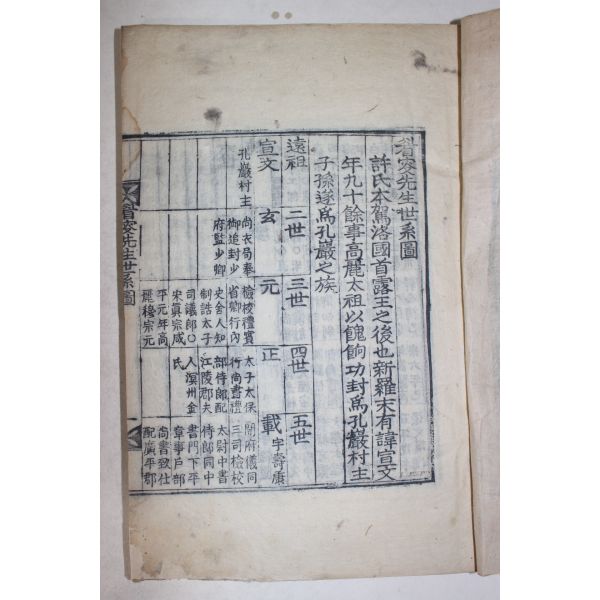 眉叟先生世系圖
許氏本駕洛國首露王之後也新羅末有諱宣文
年九十餘事高麗太祖以餽餉功封爲孔巖村主
子孫遂爲孔巖之族
遠祖
宣文
孔巖村主
二世
玄
尙衣局奉
御追封少
府監少卿
三世
元
檢校禮賓
省卿行內
史舍人知
制誥太子
司議郎〇
宋眞宗咸
平元年高
麗穆宗元
四世
正
太子太保
行尙書禮
部侍郎配
江陵郡夫
人溟州金
氏
五世
載 字壽康
開府儀同
三司檢校
太尉中書
侍郎同中
書門下平
章事戶部
尙書致仕
配廣平郡
眉叟先生世系圖